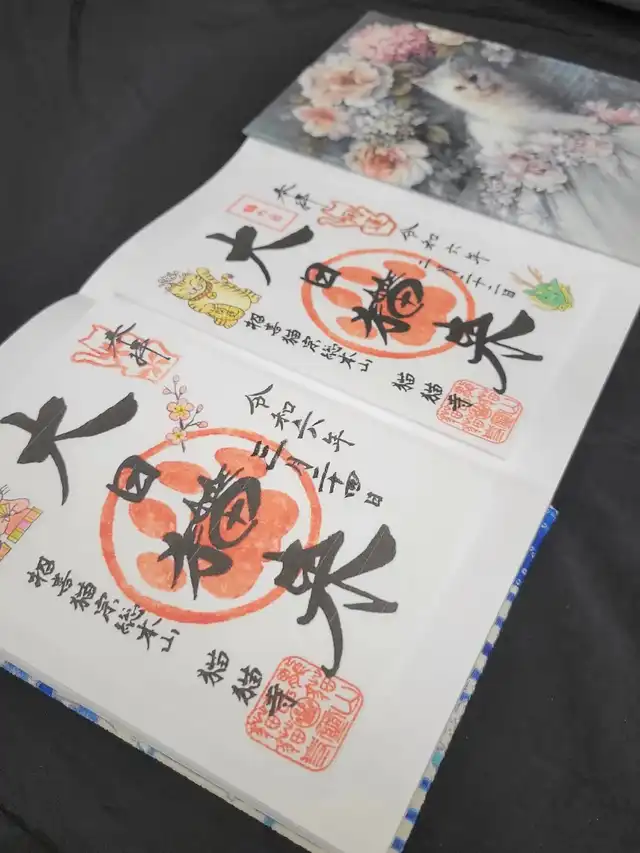 奉拝
令和六年
二月二十二日
大日猫来
招喜猫宗総本山
猫猫寺
奉拝
令和六年
三月二十四日
大日猫来
招喜猫宗総本山
猫猫寺